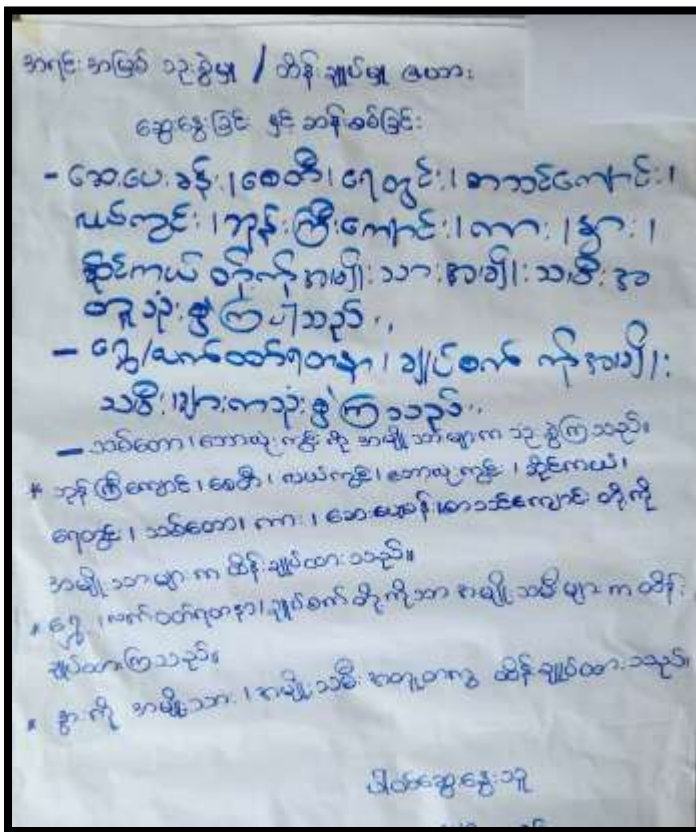 အရင်းအမြစ် သုံးစွဲမှု / ထိန်းချုပ်မှု ဇယား
ဆွေးနွေးခြင်း နှင့် ဆန်းစစ်ခြင်း
- ဆေးပေးခန်း၊ စေတီ၊ ရေတွင်း၊ စာသင်ကျောင်း၊
လယ်ကွင်း၊ ဘုန်းကြီးကျောင်း၊ ကား၊ နွား၊
ဆိုင်ကယ် တို့ကို အမျိုးသား အမျိုးသမီး အ
တူသုံးစွဲကြပါသည်။
- ရွှေ/လက်ဝတ်ရတနာ၊ ချုပ်စက် ကို အမျိုး
သမီးများကသုံးစွဲကြသည်။
- သစ်တော၊ ဘောလုံးကွင်း ကို အမျိုးသားများက သုံးစွဲကြသည်။
* ဘုန်းကြီးကျောင်း၊ စေတီ၊ လယ်ကွင်း၊ ဘောလုံးကွင်း၊ ဆိုင်ကယ်၊
ရေတွင်း၊ သစ်တော၊ ကား၊ ဆေးပေးခန်း၊ စာသင်ကျောင်း တို့ကို
အမျိုးသားများက ထိန်းချုပ်ထားသည်။
* ရွှေ၊ လက်ဝတ်ရတနာ၊ ချုပ်စက်တို့ကိုသာ အမျိုးသမီးများက ထိန်း
ချုပ်ထားကြသည်။
* နွားကို အမျိုးသား၊ အမျိုးသမီး အတူတကွ ထိန်းချုပ်ထားသည်။
ပါဝင်ဆွေးနွေးသူ